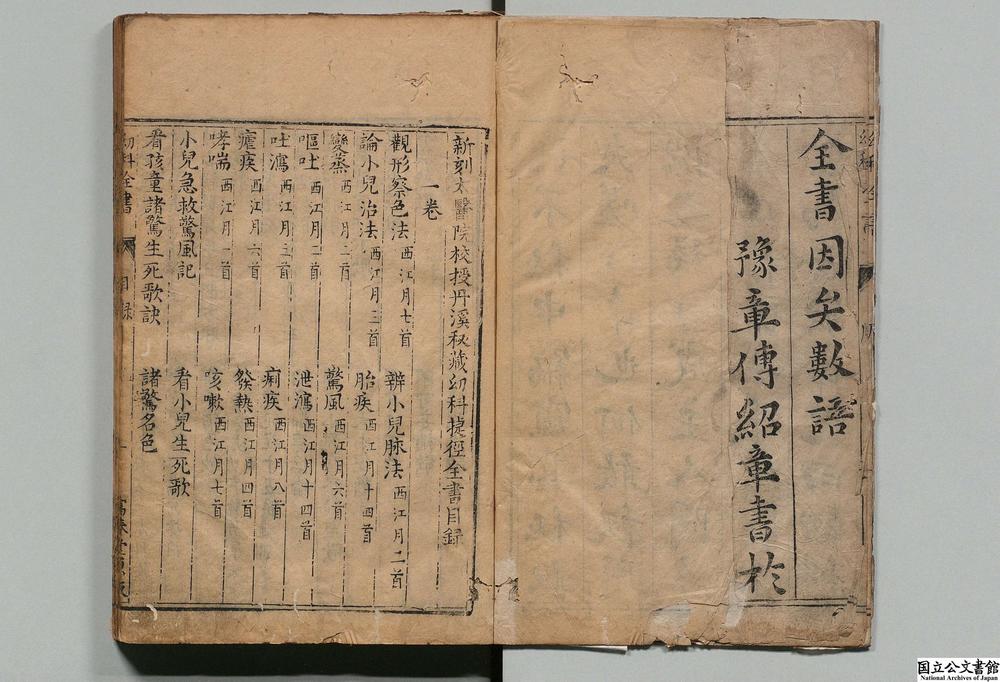 全書因矣數語
豫章傅紹章書於
新刻太醫院校授丹溪秘藏幼科捷徑全書目錄
一卷
觀形察色法 西江月七首 辨小兒脉法 西江月二首
論小兒治法 西江月三首 胎疾 西江月十四首
變蒸 西江月二首 驚風 西江月六首
嘔吐 西江月二首 泄瀉 西江月十四首
吐瀉 西江月三首 痢疾 西江月八首
瘧疾 西江月六首 發熱 西江月四首
哮喘 西江月一首 咳嗽 西江月七首
小兒急救驚風記 看小兒生死歌
看孩童諸驚生死歌訣 諸驚名色
幼科全書 目錄
国立公文書館
National Archives of Japan